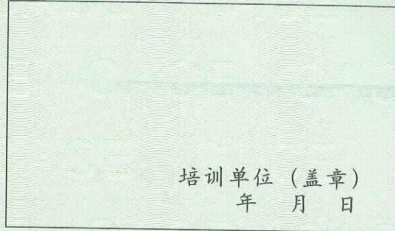 培训单位（盖章）
年 月 日